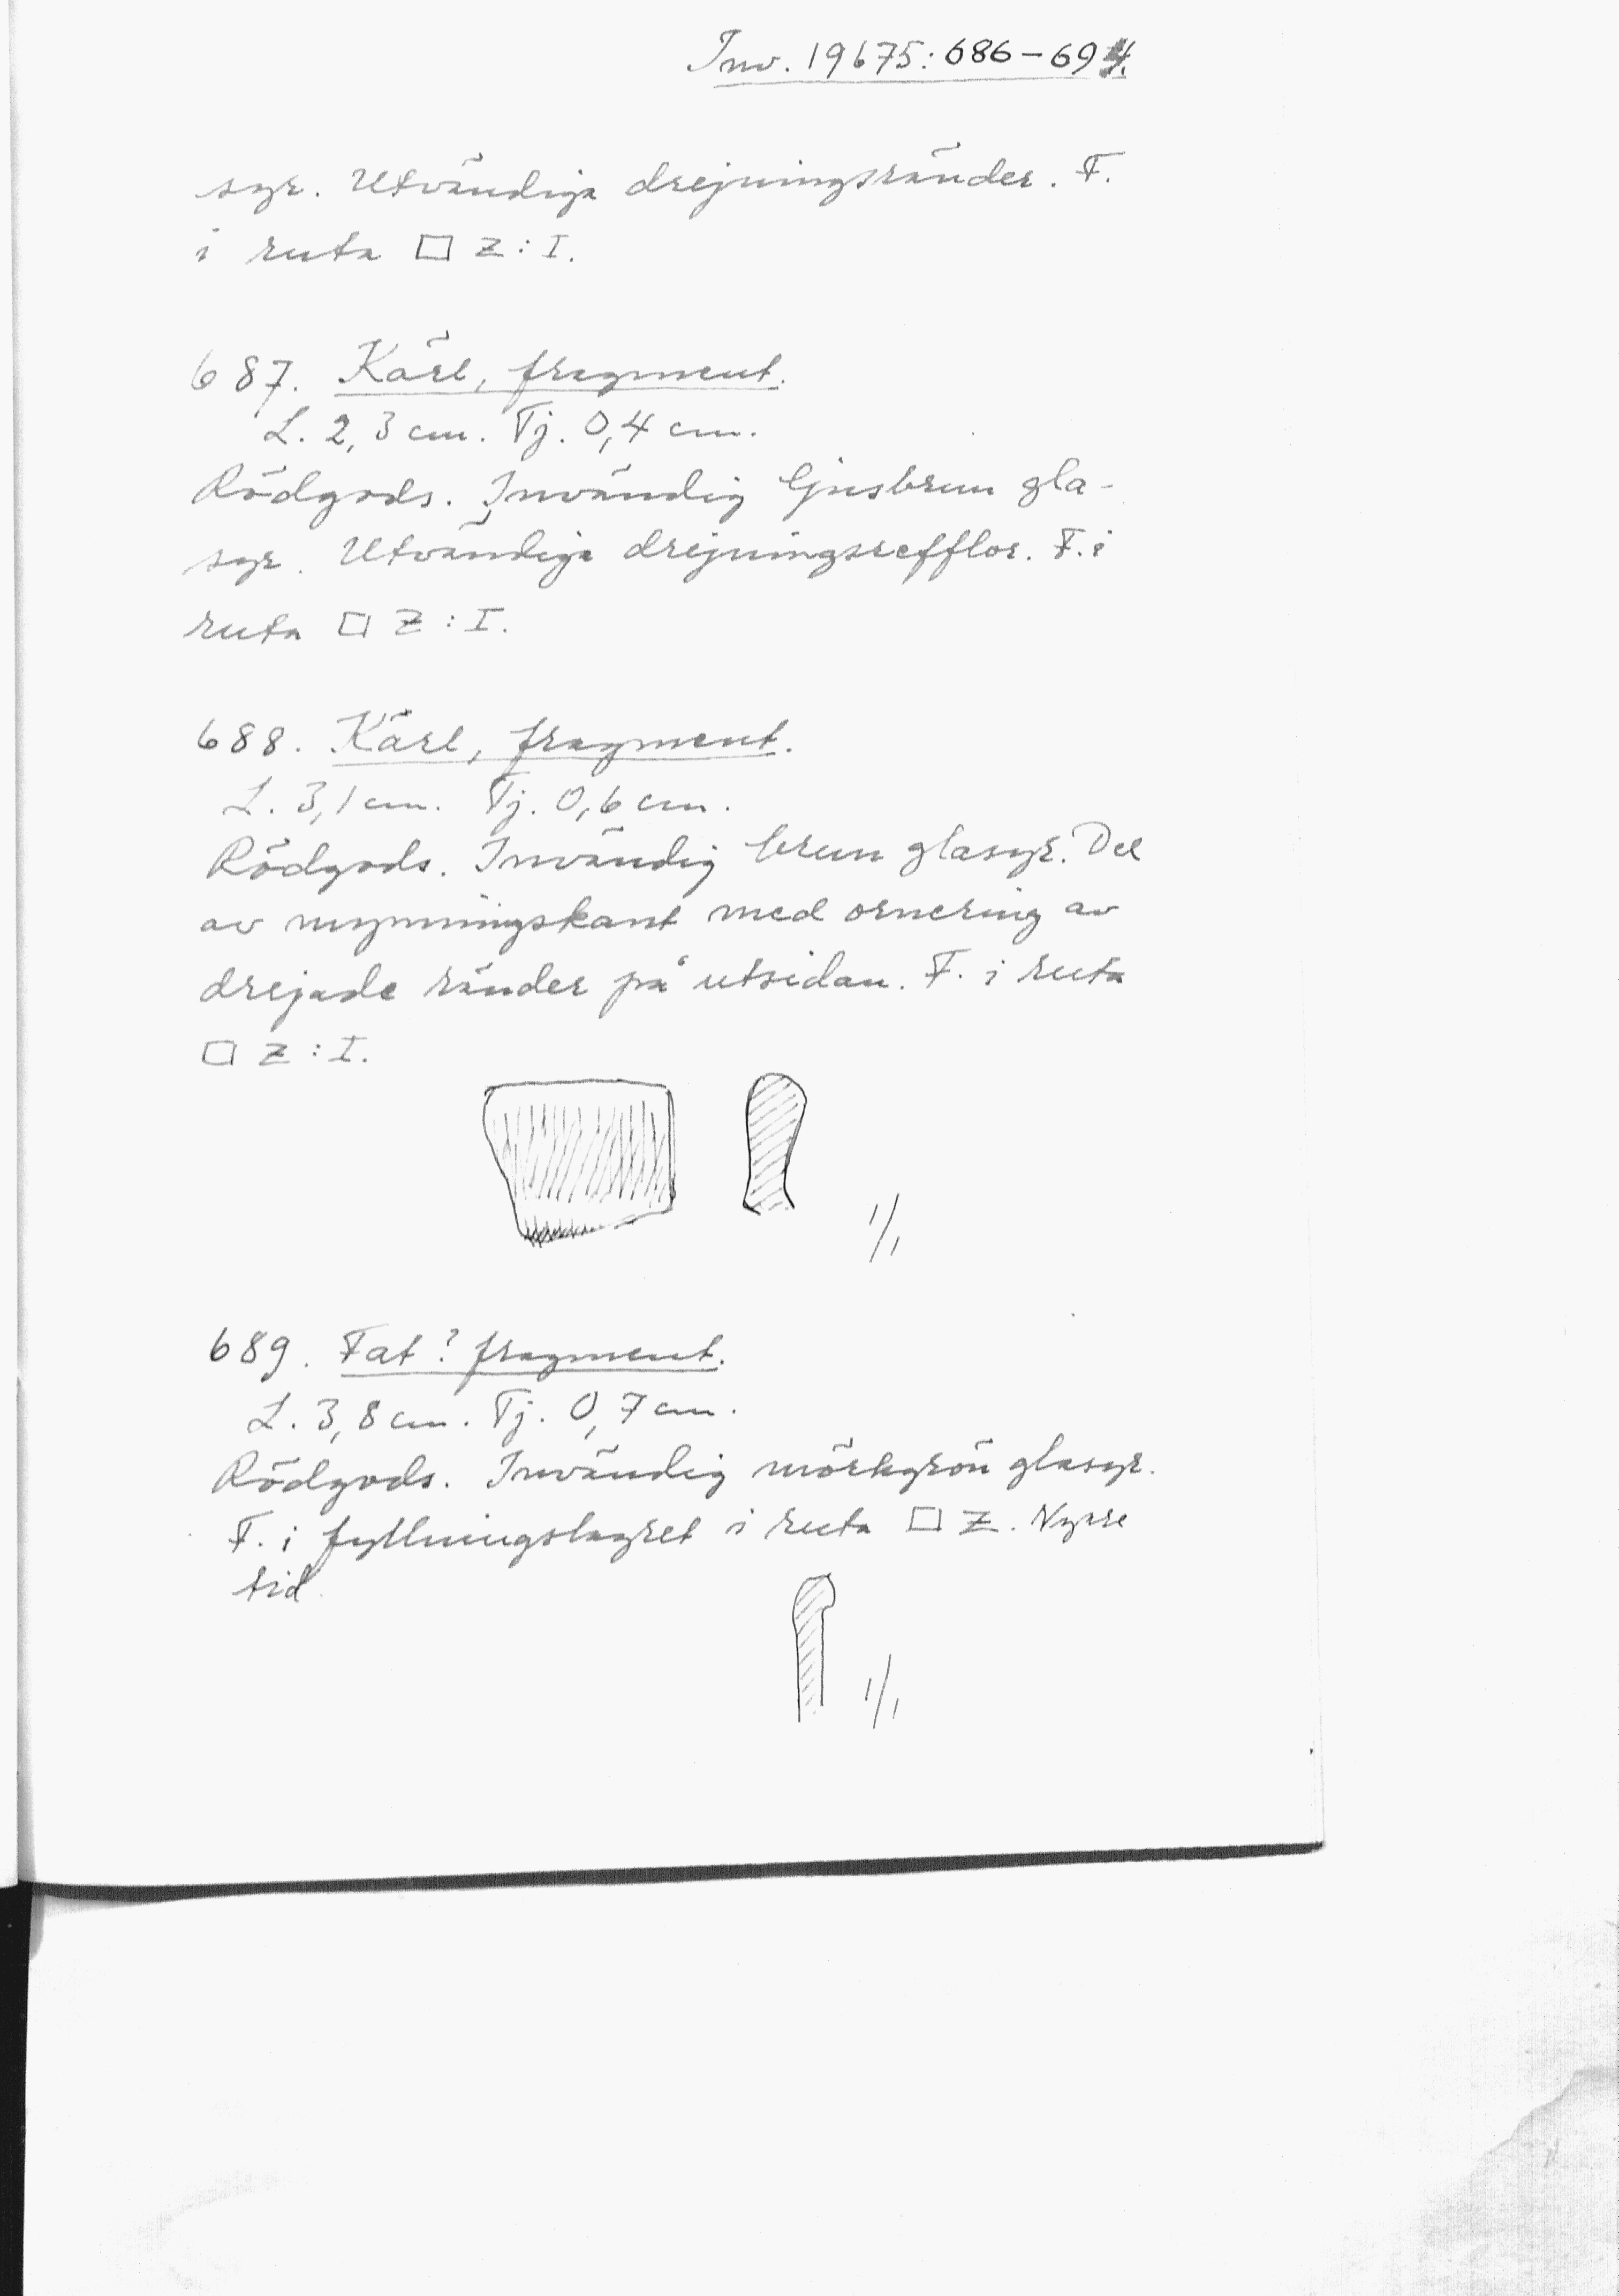 Inv. 19675:686-694.
syr. Utvändiga drejningsränder. F.
i ruta □ Z:I.
687. Kärl, fragment.
L. 2,3 cm. Tj. 0,4 cm.
Rödgods. Invändig ljusbrun gla-
syr. Utvändiga drejningsrefflor. F. i
ruta □ Z:I.
688. Kärl, fragment.
L. 3,1 cm. Tj. 0,6 cm.
Rödgods. Invändig brun glasyr. Del
av mynningskant med ornering av
drejade ränder på utsidan. F. i ruta
□ Z:I.
1/1
689. Fat? fragment.
L. 3,8 cm. Tj. 0,7 cm.
Rödgods. Invändig mörkgrön glasyr.
F. i fyllningslagret i ruta □ Z. Nyare
tid.
1/1